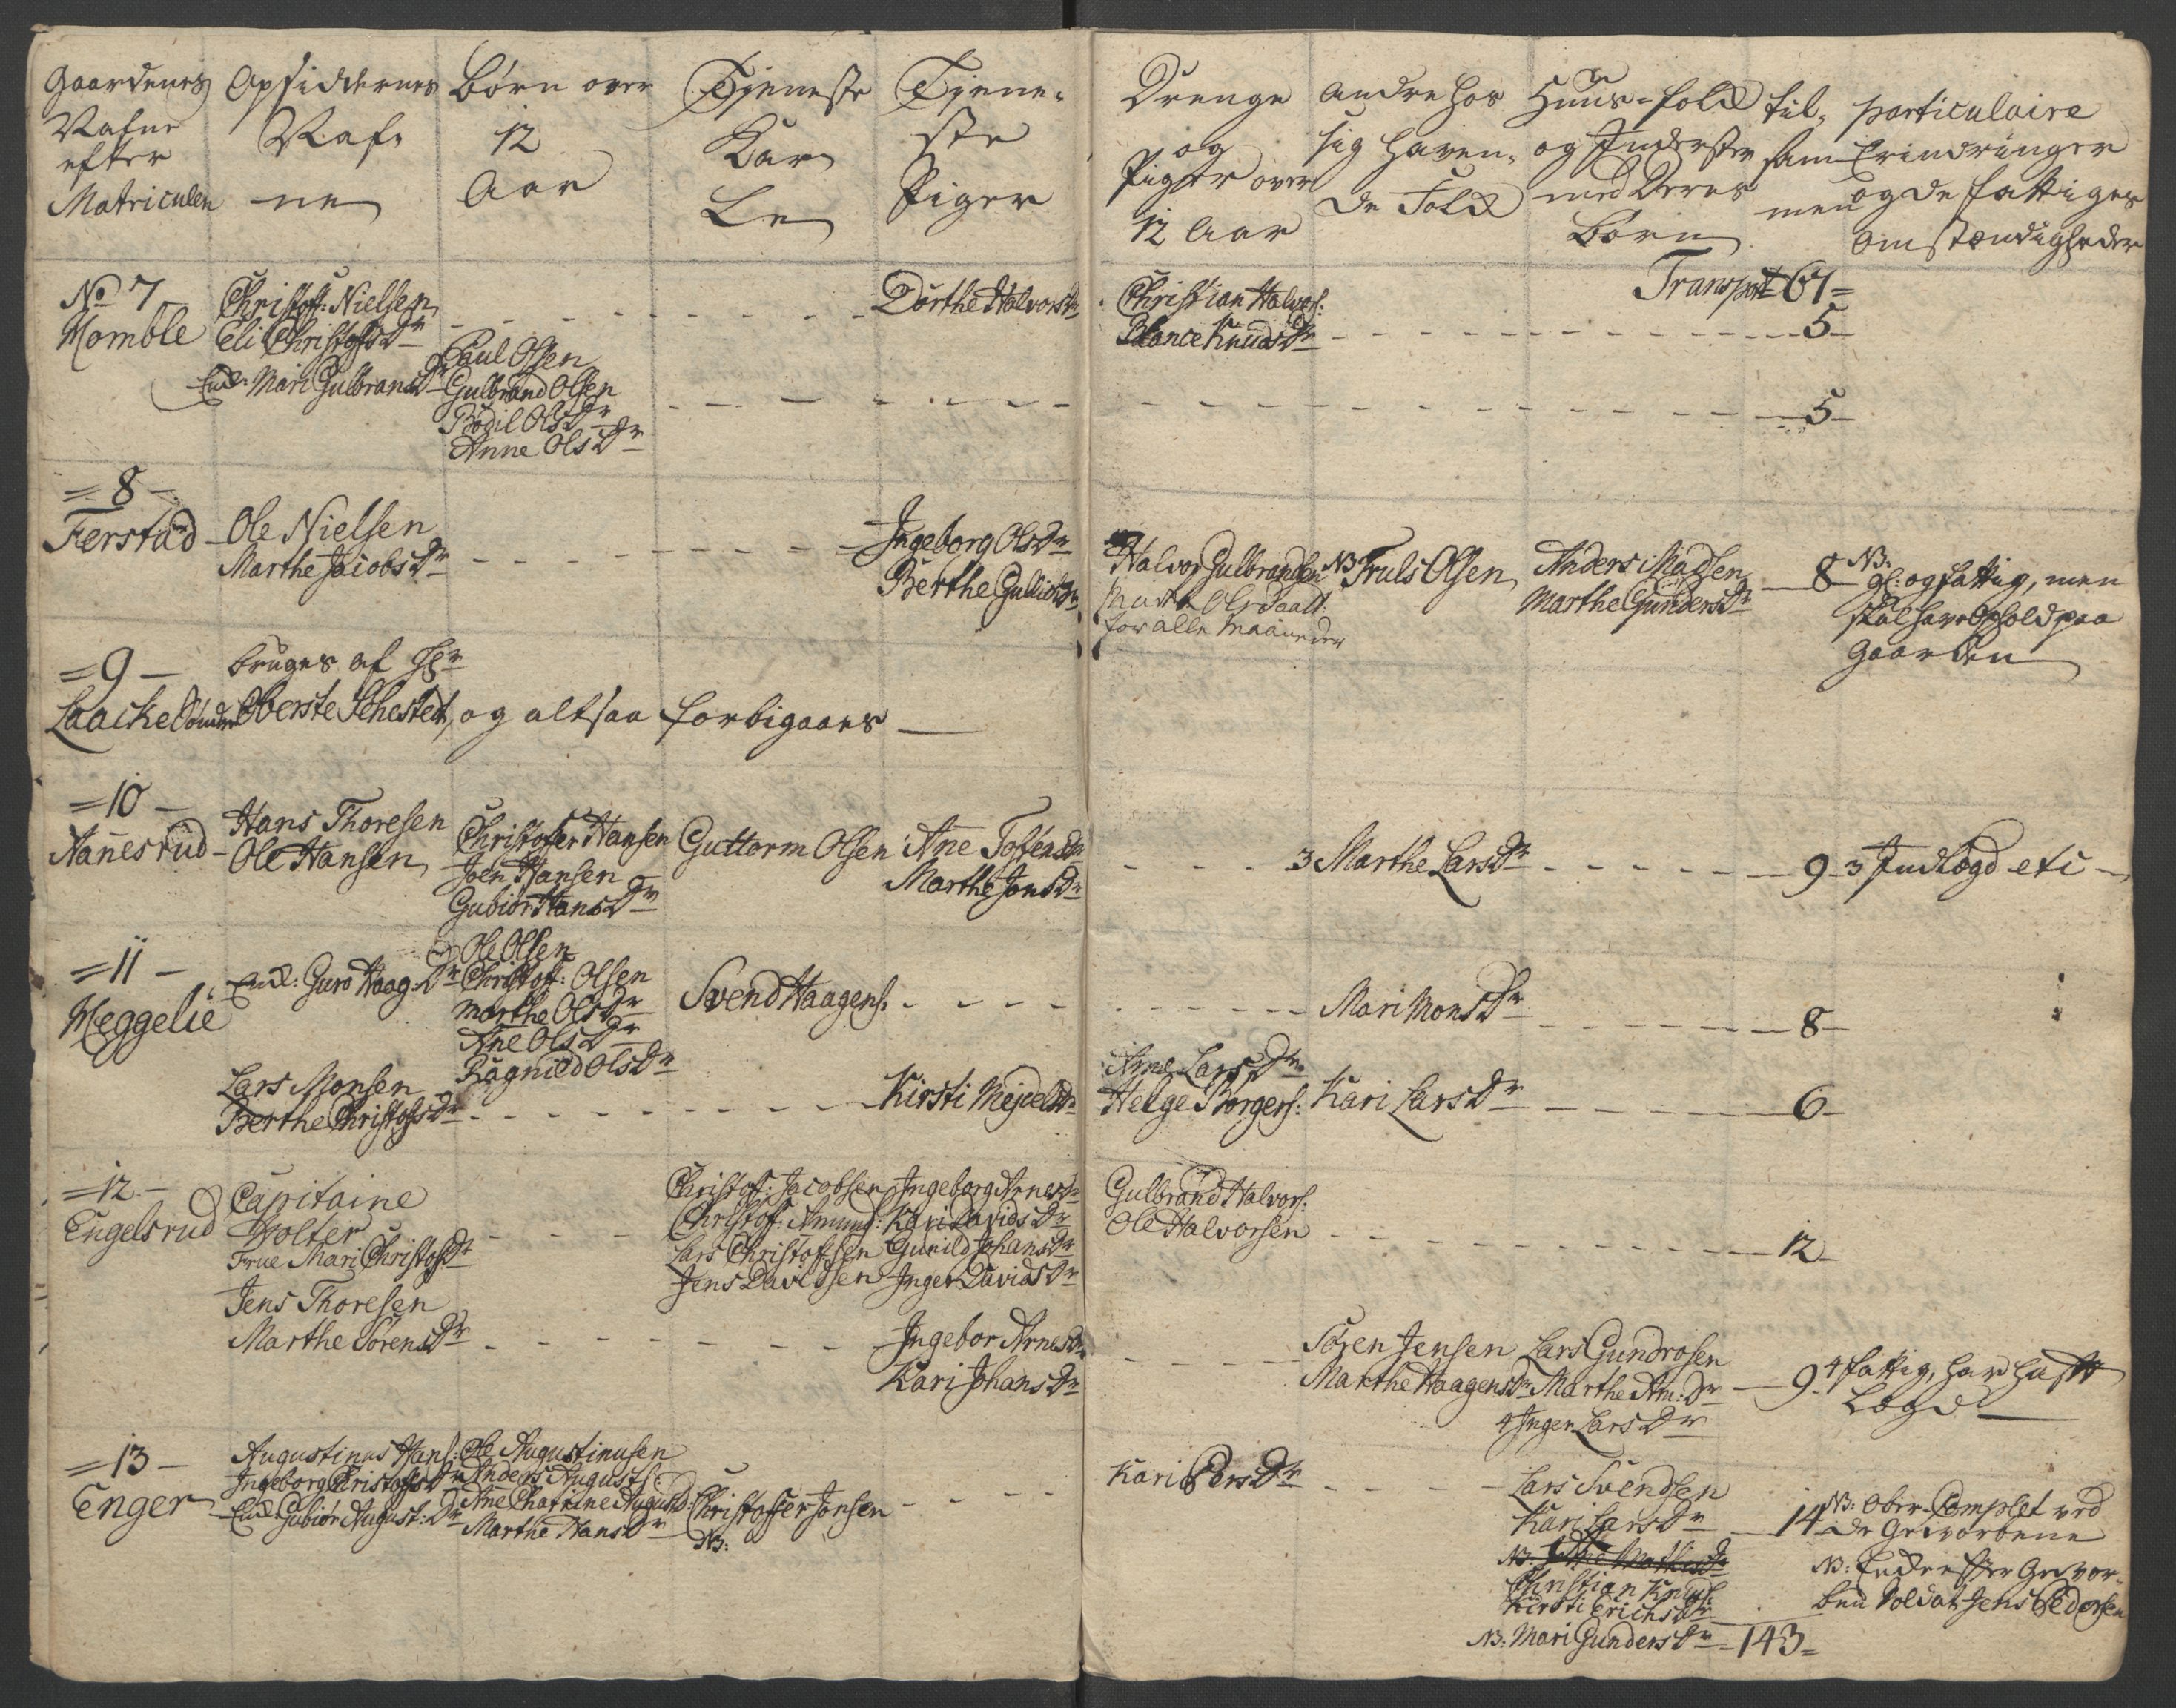 Gaardenes Nafne efter Matriculen
Opsiddernes Nafne
Børn over 12 Aar
Tjeneste Karle
Tjeneste Piger
Drenge og Piger over 12 Aar
Andre hos sig havende Folck
Huus-folck og Inderster med Deres Børn
tilsammen
particulaire Erindringer og de fattiges Omstændigheder
Transport 67=
No 7
Momble
Christoff: Nielsen
Eli Christofs Dr
Dorthe Halvors Dr
Christian Halvors:
Knuds Dr
5
Enck: Mari Gulbrands Dr
Paul Olsen
Gulbrand Olsen
Bodil Ols Dr
Anne Ols Dr
5
=8-
Ferstad
Ole Nielsen
Marthe Jacobs Dr
Ingeborg Ols Dr
Berthe Gullichs Dr
Halvor Gulbrandsen
for alle Maaneder
NB Truls Olsen
Anders Madsen
Marthe Gunders Dr
8
NB: gl: og fattig, men
skal have Ophold paa
Gaarden
=9-
Laache Søndre
bruges af Hr
Oberste Sehested, og altsaa forbigaaes
=10-
Aanesrud
Hans Thoresen
Ole Hansen
Christofer Hansen
Joen Hansen
Gubiør Hans Dr
Guttorm Olsen
Ane Tostens Dr
Marthe Jons Dr
3 Marthe Lars Dr
9
3 Indlogd etc
=11-
Meggelie
Enck: Guro Haag: Dr
Ole Olsen
Christoff: Olsen
Marthe Ols Dr
Ane Ols Dr
Ragnild Ols Dr
Svend Haagens:
Mari Mons Dr
8
Lars Monsen
Berthe Christofs Dr
Kirsti Mejdels Dr
Arne Lars Dr
Helge Borgers:
Kari Lars Dr
6
=12-
Engelsrud
Capitaine
Wolter
Frue Mari Christofs Dr
Christoff: Jacobsen
Christoff: Amund:
Lars Christoffsen
Jens Davidsen
Ingeborg Arnes Dr
Kari Davids Dr
Gunild Johans Dr
Inger Davids Dr
Gulbrand Halvors:
Ole Halvorsen
12
Jens Thoresen
Marthe Sørens Dr
Ingebor Arnes Dr
Kari Johans Dr
Søren Jensen
Marthe Haagens Dr
Lars Gundrosen
Marthe Am: Dr
4 Inger Lars Dr
9
4 fattig, har hafft
Logd
=13-
Enger
Augustinus Hans:
Ingeborg Christofs Dr
Enck: Gubiør August: Dr
Ole Augustinusen
Anders Augusts:
Ane Chatrine August: D:
Marthe Hans Dr
Christoffer Jonsen
NB:
Kari Pers Dr
Lars Svendsen
Kari Lars Dr
NB:
Christian Knuds:
Kirsti Erichs Dr
NB: Mari Gunders Dr
14
NB: Over-Complet ved
de Gevorbene
NB: Enck efter Gevor-
ben Soldat Jens Pedersen
143=